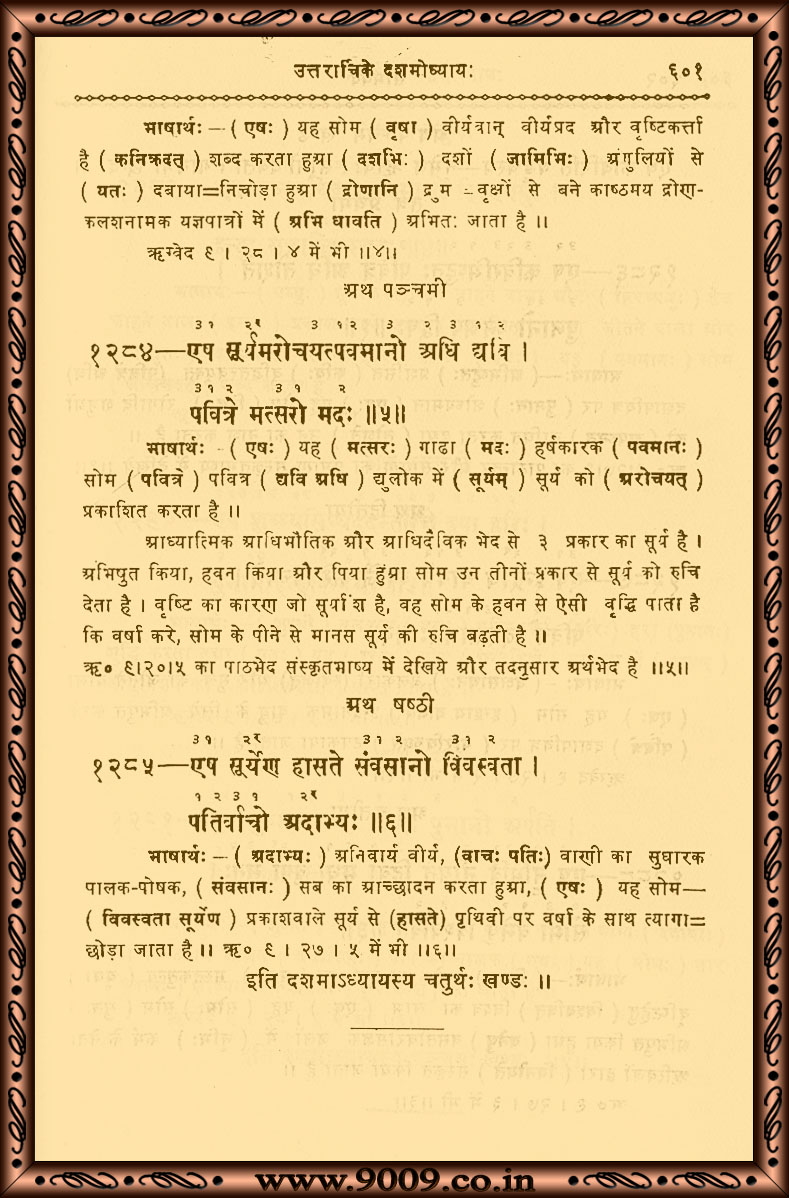 उत्तरार्चिके दशमोध्यायः ६०१
भाषार्थः — ( एषः ) यह सोम ( वृषा ) वीर्यवान् वीर्यप्रद और वृष्टिकर्त्ता
है ( कनिक्रदत् ) शब्द करता हुआ ( दशभिः ) दशों ( जामिभिः ) अंगुलियों से
( यतः ) दबाया=निचोड़ा हुआ ( द्रोणानि ) द्रुम - वृक्षों से बने काष्ठमय द्रोण-
कलशनामक यज्ञपात्रों में ( अभि धावति ) अभितः जाता है ॥
ऋग्वेद ९ । २८ । ४ में भी ॥४॥
अथ पञ्चमी
३१ २र ३ १२ ३ २ ३ १ २
१२८४—एष सूर्यमरोचयत्पवमानो अधि द्यवि ।
३१ २ ३ १ २
पवित्रे मत्सरो मदः ॥५॥
भाषार्थः - ( एषः ) यह ( मत्सरः ) गाढा ( मदः ) हर्षकारक ( पवमानः )
सोम ( पवित्रे ) पवित्र ( द्यवि अधि ) द्युलोक में ( सूर्यम् ) सूर्य को ( अरोचयत् )
प्रकाशित करता है ॥
आध्यात्मिक आधिभौतिक और आधिदैविक भेद से ३ प्रकार का सूर्य है ।
अभिषुत किया, हवन किया और पिया हुआ सोम उन तीनों प्रकार से सूर्य को रुचि
देता है । वृष्टि का कारण जो सूर्यांश है, वह सोम के हवन से ऐसी वृद्धि पाता है
कि वर्षा करे, सोम के पीने से मानस सूर्य की रुचि बढ़ती है ॥
ऋ० ९।२०।५ का पाठभेद संस्कृतभाष्य में देखिये और तदनुसार अर्थभेद है ॥५॥
अथ षष्ठी
३१ २र ३१ २ ३१ २
१२८५—एष सूर्येण हासते संवसानो विवस्वता ।
१ २ ३ १ २र
पतिर्वाचो अदाभ्यः ॥६॥
भाषार्थः — ( अदाभ्यः ) अनिवार्य वीर्य, (वाचः पतिः) वाणी का सुधारक
पालक-पोषक, ( संवसानः ) सब का आच्छादन करता हुआ, ( एषः ) यह सोम—
( विवस्वता सूर्येण ) प्रकाशवाले सूर्य से (हासते) पृथिवी पर वर्षा के साथ त्यागा=
छोड़ा जाता है ॥ ऋ० ९ । २७ । ५ में भी ॥६॥
इति दशमाऽध्यायस्य चतुर्थः खण्डः ॥
www.9009.co.in